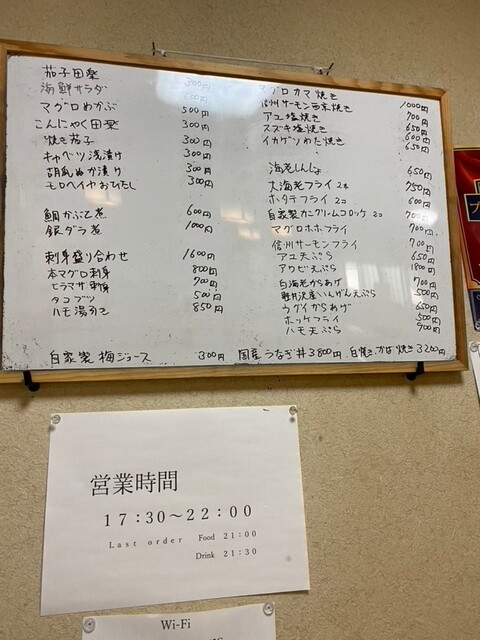 茄子田楽 300円
海鮮サラダ 600円
マグロわかぶ 500円
こんにゃく田楽 300円
焼き茄子 300円
キャベツ浅漬け 300円
胡瓜ぬか漬け 300円
モロヘイヤおひたし 300円
鯛かぶと煮 600円
銀ダラ煮 1000円
刺身盛り合わせ 1600円
本マグロ刺身 800円
ヒラマサ刺身 700円
タコブツ 500円
ハモ湯引き 850円
マグロカマ焼き 1000円
信州サーモン西京焼き 700円
アユ塩焼き 650円
スズキ塩焼き 600円
イカゲソわた焼き 650円
海老しんじょ 650円
大海老フライ 2本 750円
ホタテフライ 2コ 600円
自家製カニクリームコロッケ 2コ 700円
マグロホホフライ 700円
信州サーモンフライ 700円
アユ天ぷら 650円
アワビ天ぷら 1800円
白海老からあげ 700円
軽井沢産いんげん天ぷら 500円
ウグイからあげ 650円
ホッケフライ 500円
ハモ天ぷら 900円
自家製 梅ジュース 300円 国産うなぎ丼 3800円 白焼き、かば焼き 3200円
営業時間
17:30～22:00
Last order Food 21:00
Drink 21:30
Wi-Fi